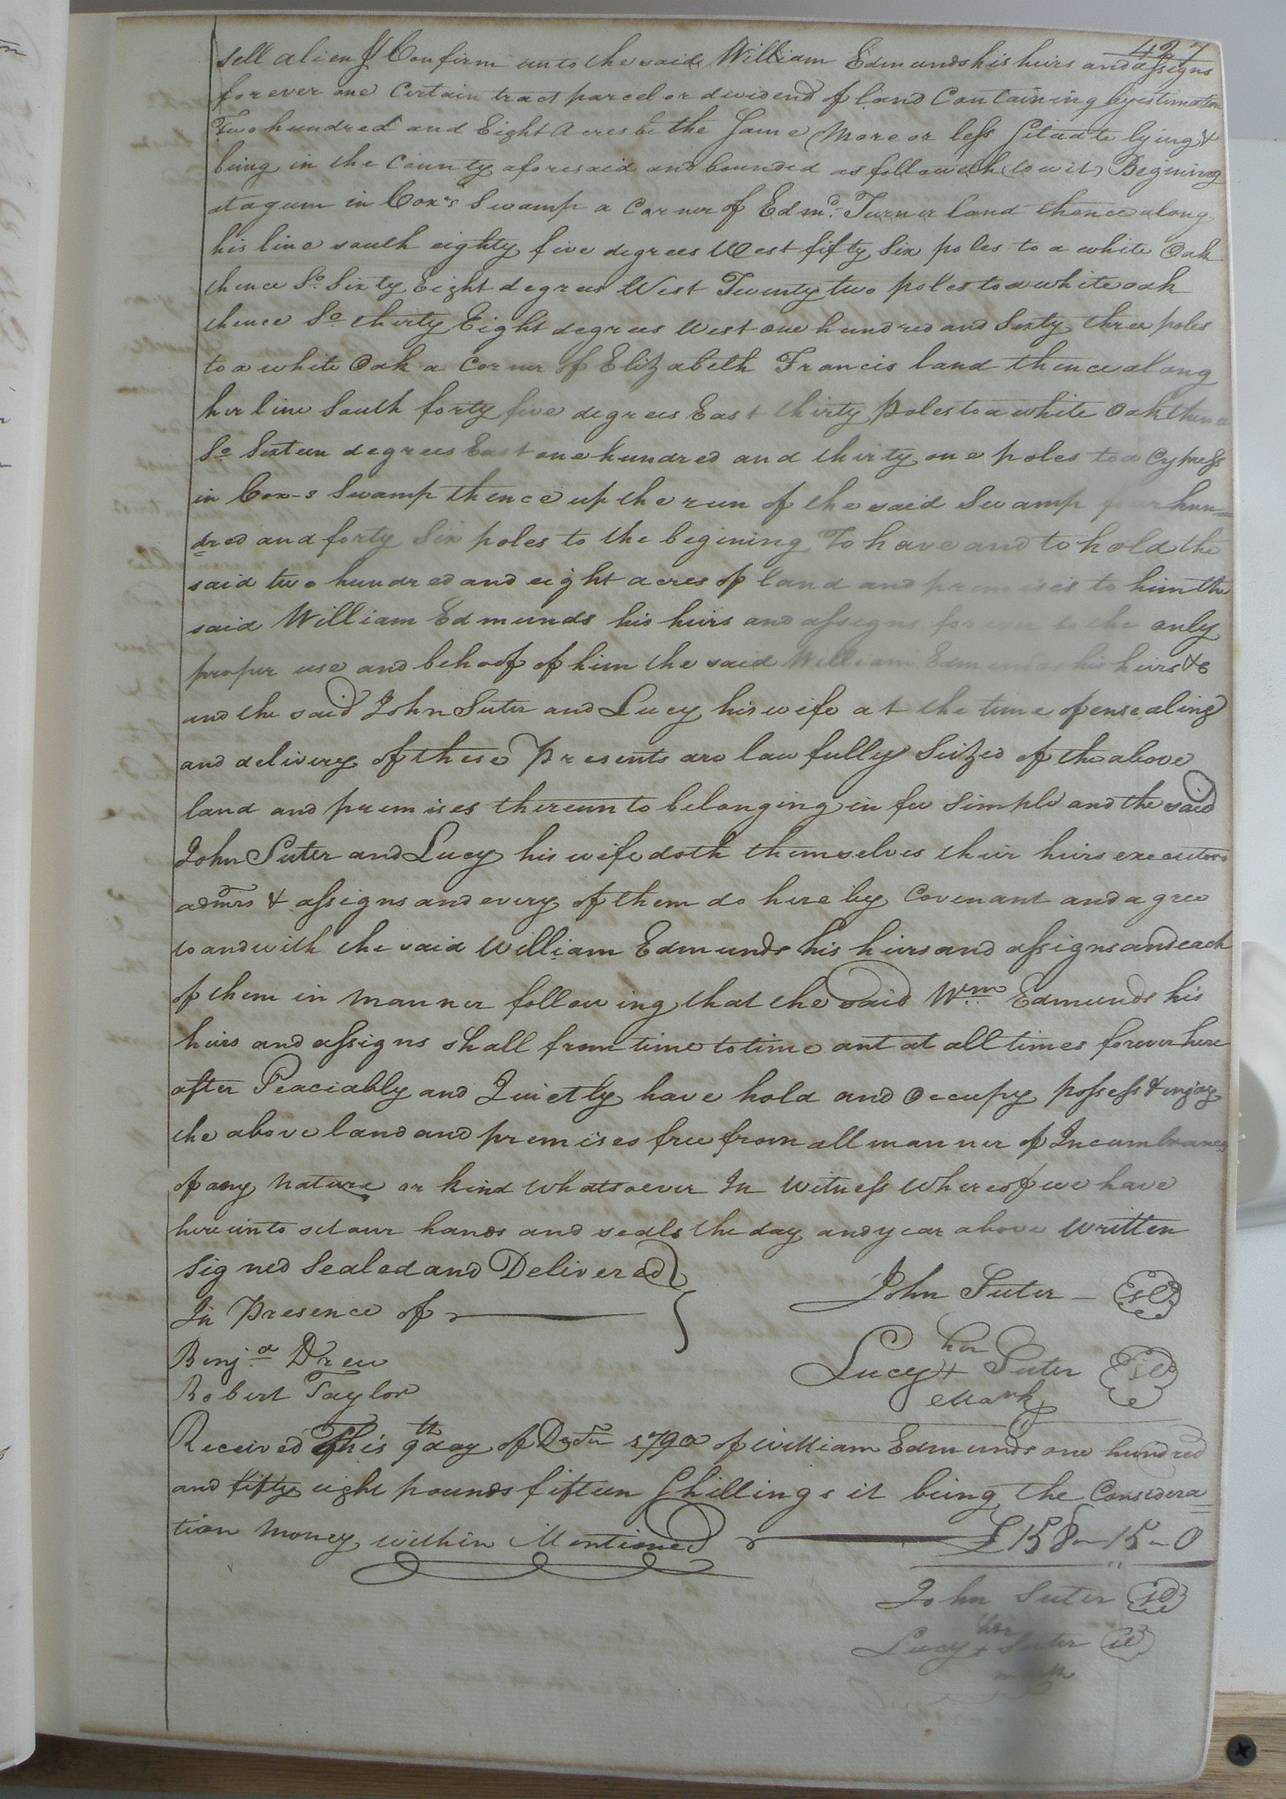 427
sell alien & Confirm unto the said William Edmunds his heirs and assigns
forever one Certain tract parcel or dividend of land Containing by estimation
Two hundred and Eight Acres be the Same More or less Situate lying &
being in the County aforesaid and bounded as followeth (to wit) Begining
at a gum in Cox's Swamp a Corner of Edmd. Turner land thence along
his line south eighty five degrees West fifty Six poles to a white Oak
thence So. Sixty Eight degrees West Twenty two poles to a white oak
thence So thirty Eight degrees West one hundred and Sixty three poles
to a white Oak a Corner of Elizabeth Francis land thence along
her line South forty five degrees East thirty Poles to a white Oak thence
So Sixteen degrees East one hundred and thirty one poles to a Cypress
in Cox-s Swamp thence up the run of the said Swamp four hun=
=dred and forty Six poles to the begining To have and to hold the
said two hundred and eight acres of land and premises to him the
said William Edmunds his heirs and assigns forever to the only
proper use and behoof of him the said William Edmunds his heirs &c
and the said John Suter and Lucy his wife at the time of ensealing
and delivery of these Presents are lawfully Seized of the above
land and premises thereunto belonging in fee Simple and the said
John Suter and Lucy his wife doth themselves their heirs executors
admrs & assigns and every of them do here by Covenant and agree
to and with the said William Edmunds his heirs and assigns and each
of them in manner following that the said Wm Edmunds his
heirs and assigns shall from time to time ant at all times forever here
after Peaciably and Quietly have hold and Occupy possess & enjoy
the above land and premises free from all manner of Incumbrances
of any nature or kind Whatsoever In Witness Whereof we have
hereunto set our hands and seals the day and year above Written
Signed Sealed and Delivered
In Presence of
John Suter - Se
Benja Drew
her
Lucy + Suter Se
Mark
Robert Taylor
Received This 9th day of Decr 1790 of William Edmunds one hundred
and fifty eight pounds fifteen Shillings it being the Considera=
tion Money within Mentioned £158-15-0
John Suter Se
her
Lucy + Suter Se
mark